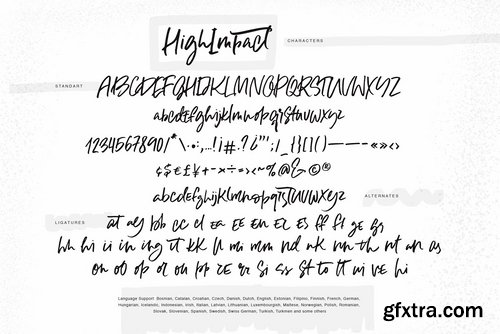 HighImpact
CHARACTERS
STANDART
ABCDEFGHIJKLMNOPQRSTUVWXYZ
abcdefghijklmnopqrstuvwxyz
1234567890/*\·•:,...!¡#.?¿"';/_{}[]()—–-«»<>
¢$€£¥+-×÷=><~%@&©®
abcdefghijklmnopqrstuvwxyz
ALTERNATES
LIGATURES
Language Support: Bosnian, Catalan, Croatian, Czech, Danish, Dutch, English, Estonian, Filipino, Finnish, French, German,
Hungarian, Icelandic, Indonesian, Irish, Italian, Latvian, Lithuanian, Luxembourgish, Maltese, Norwegian, Polish, Romanian,
Slovak, Slovenian, Spanish, Swedish, Swiss German, Turkish, Turkmen and some others
gfxtra.com